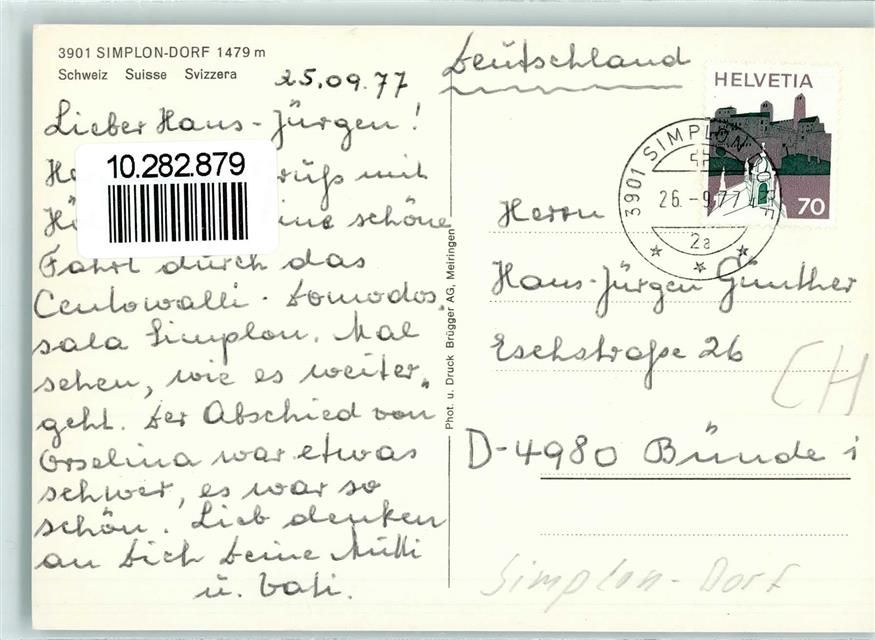 3901 SIMPLON-DORF 1479 m
Schweiz Suisse Svizzera
25.09.77
Lieber Hans-Jürgen!
10.282.879
mit
schöne
Fahrt durch das
Centowalli - Domodos,
sala Simplon. Mal
sehen, wie es weiter„
geht. Der Abschied von
Orselina war etwas
schwer, es war so
schön. Lieb denken
an Dich Deine Mutti
u. Vati.
Phot. u. Druck Brügger AG, Meiringen
Deutschland
HELVETIA
70
3901 SIMPLON DORF
26.-9.77
2a
Herrn
Hans-Jürgen Günther
Eschstraße 26
CH
D-4980 Bünde i
Simplon-Dorf